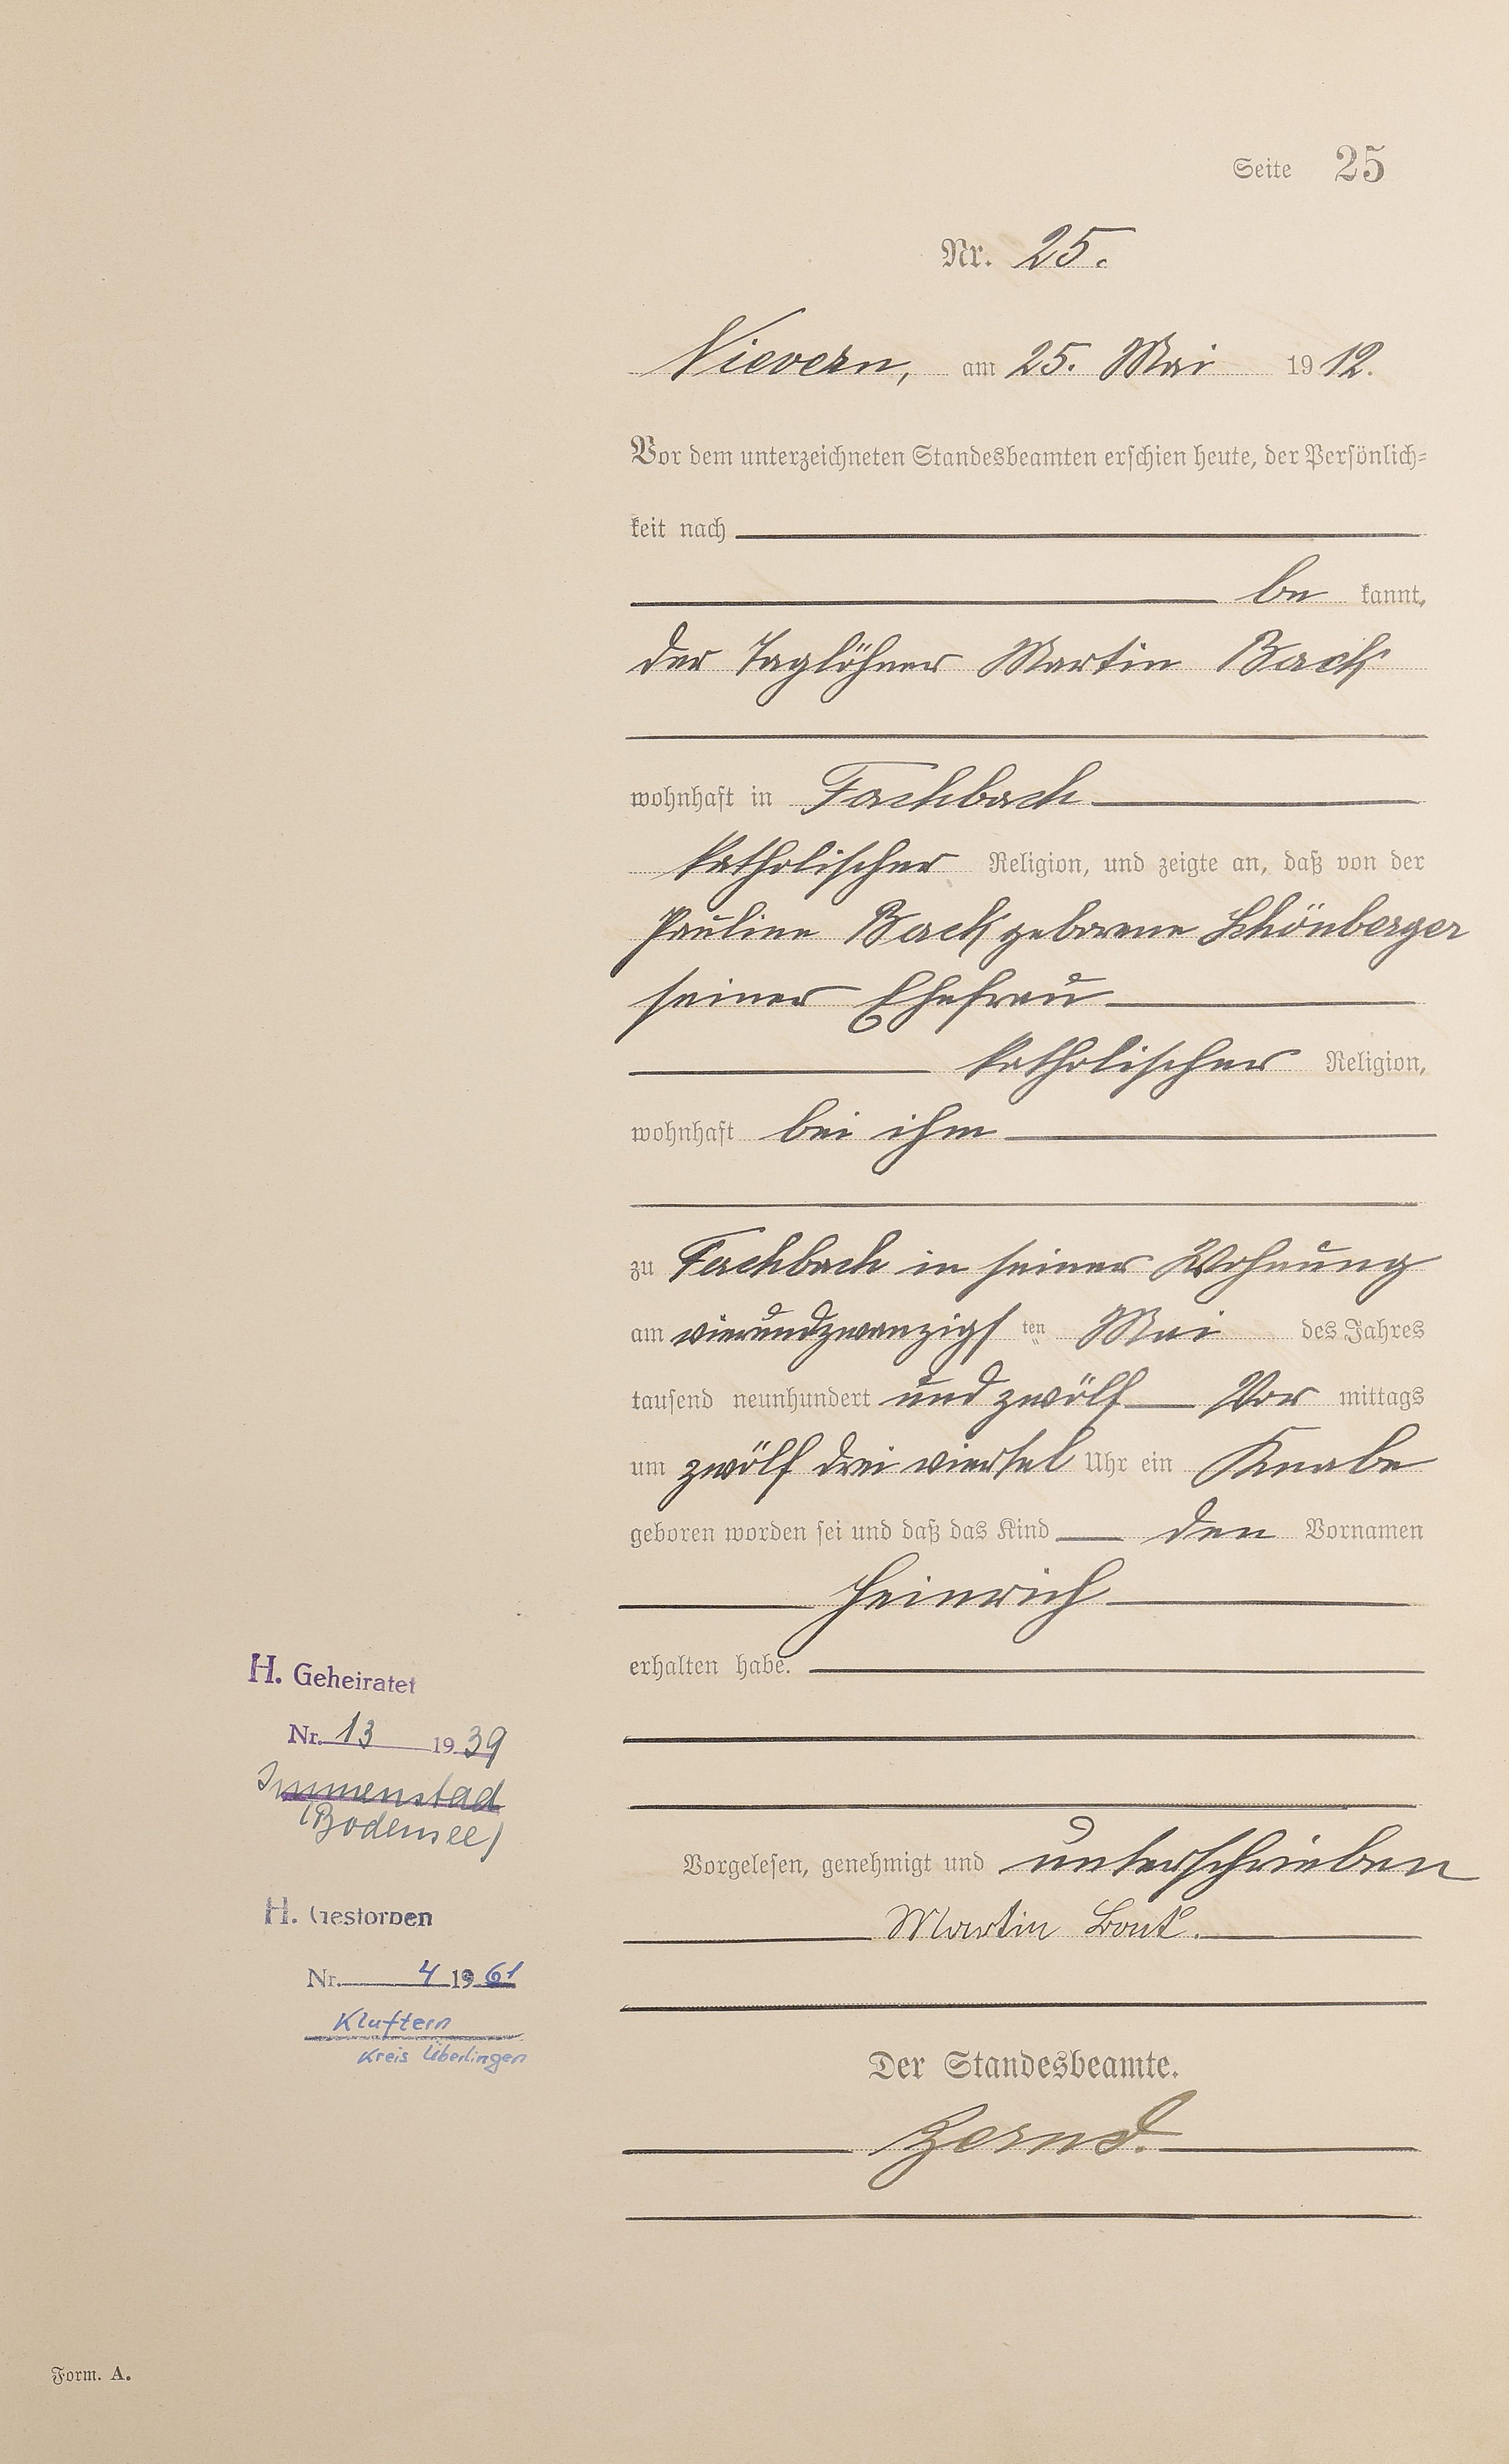 Seite 25
Nr. 25.
Nievern, am 25. Mai 1912.
Vor dem unterzeichneten Standesbeamten erschien heute, der Persönlich=
keit nach
be kannt,
der Taglöhner Martin Back
wohnhaft in Fachbach
katholischer Religion, und zeigte an, daß von der
Pauline Back geborene Schönberger
seiner Ehefrau
katholischer Religion,
wohnhaft bei ihm
zu Fachbach in seiner Wohnung
am vierundzwanzigs ten Mai des Jahres
tausend neunhundert und zwölf Vor mittags
um zwölf drei viertel Uhr ein Knabe
geboren worden sei und daß das Kind den Vornamen
Heinrich
erhalten habe.
H. Geheiratet
Nr. 13 1939
Immenstad
(Bodensee)
Vorgelesen, genehmigt und unterschrieben
Martin
H. Gestorben
Nr. 4 1961
Kluftern
Kreis Überlingen
Der Standesbeamte.
Form. A.